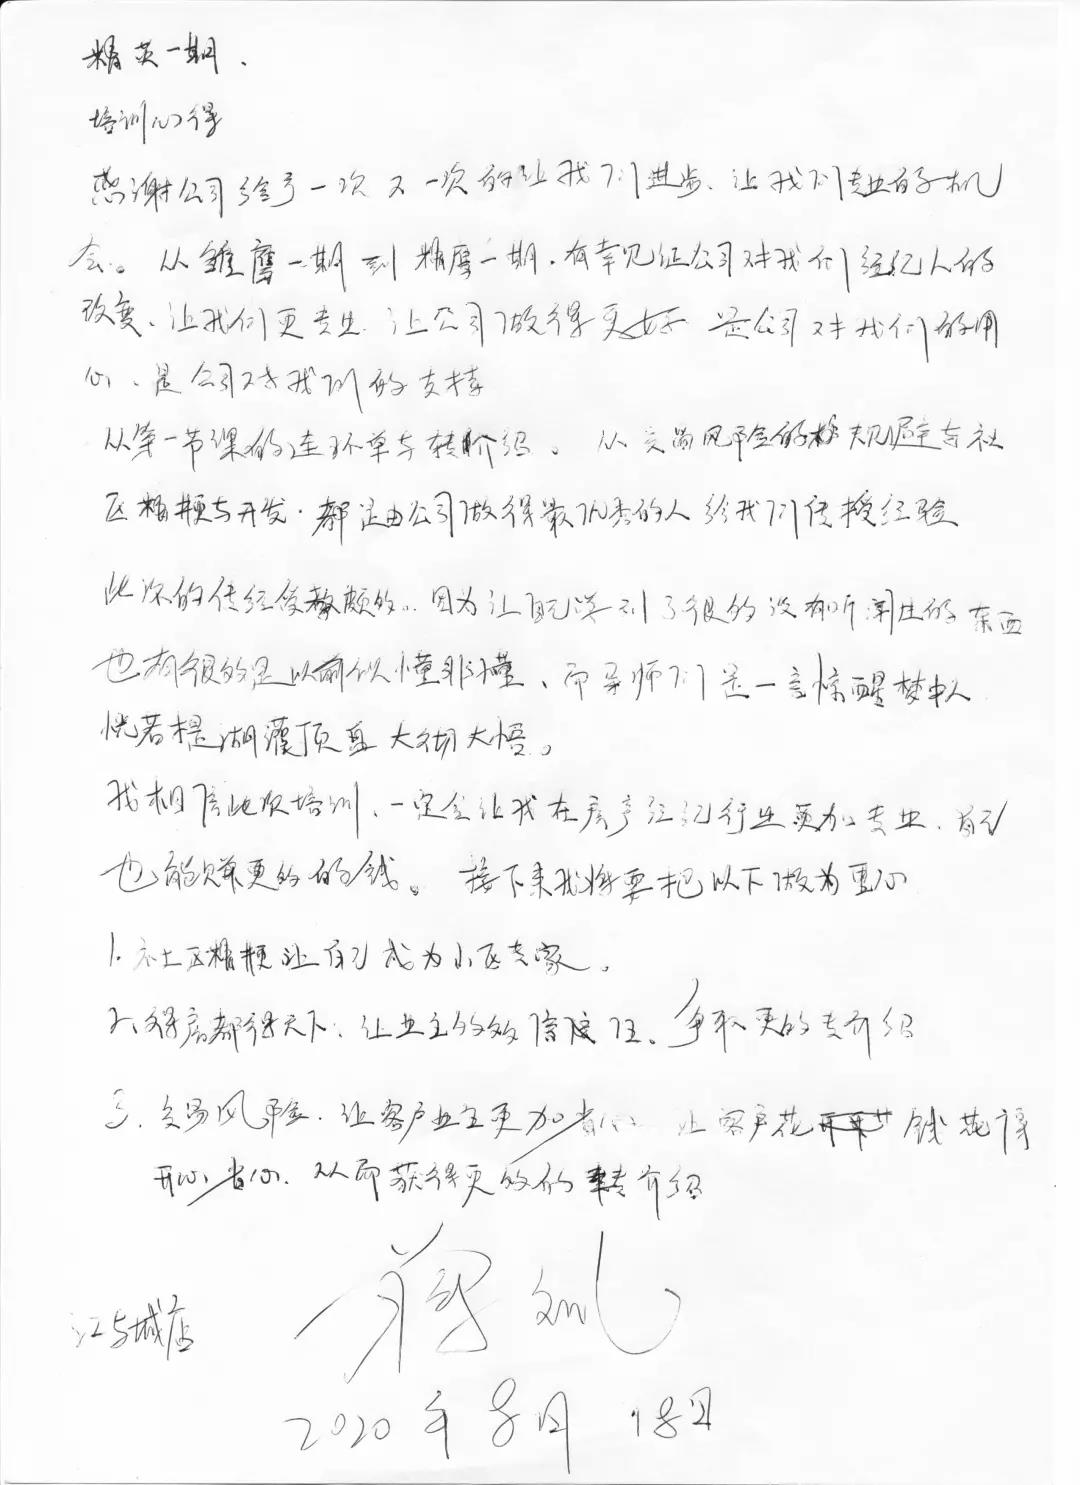 精英一期.
培训心得
感谢公司给予一次又一次的让我们进步、让我们专业的机
会。从雏鹰一期到精鹰一期.有幸见证公司对我们经纪人的
改变、让我们更专业.让公司做得更好 是公司对我们的用
心、是公司对我们的支持
从第一节课的连环单与转介绍。从交易风险的规避与社
区精耕与开发.都是由公司做得最优秀的人给我们传授经验
此次的传经受教颇的.因为让自己学到了很的没有听闻过的东西
也有很的是以前似懂非懂、而导师们是一言惊醒梦中人
恍若提湖灌顶直大彻大悟。
我相信此次培训、一定会让我在房产经纪行业更加专业、自己
也能赚更的的钱。接下来我将要把以下做为重心
1.社区精耕让自己成为小区专家。
2、得房都得天下、让业主的信任、争取更的专介绍
3.交易风险.让客户业主更加省心 让客户花钱花得
开心省心.从而获得更的的转介绍
蒋
江与城店
2020年8月18日